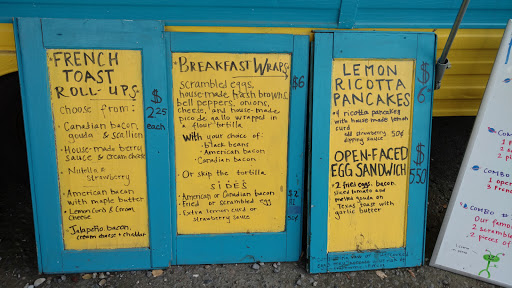 FRENCH
TOAST
ROLL-UPS
$
2.25
each
choose from:
· Canadian bacon,
gouda & scallion
· House-made berry
sauce & cream cheese
· Nutella &
strawberry
· American bacon
with maple butter
· Lemon Curd & Cream
Cheese
· Jalapeño, bacon,
cream cheese & cheddar
BREAKFAST WRAPS
$6
scrambled eggs,
house-made hash browns,
bell peppers, onions,
cheese, and house-made
pico de gallo wrapped in
a flour tortilla
With your choice of:
· black beans
· American bacon
· Canadian bacon
Or skip the tortilla.
SIDES
· American or Canadian bacon
· Fried or scrambled egg
· Extra lemon curd or
strawberry sauce
$2
LEMON
RICOTTA
PANCAKES
$
6
4 ricotta pancakes
with house made lemon
curd
add strawberry 50¢
dipping sauce
OPEN-FACED
EGG SANDWICH
$
5.50
2 fried eggs, bacon,
sliced tomato and
on
Texas toast with
garlic butter
COMBO
1 open
3 Fren
COMBO
Our famou
2 scramble
2 pieces of